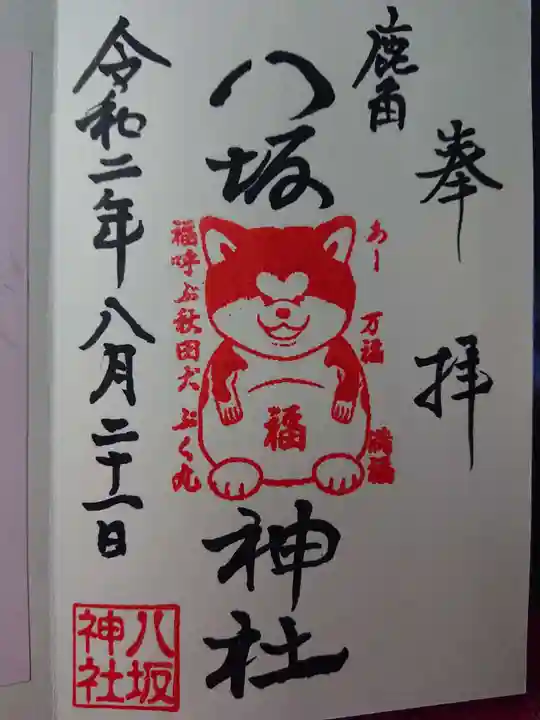 奉拝
鹿角
八坂神社
あー
万福
満福
福
福呼ぶ秋田犬ぷく丸
令和二年八月二十一日
八坂
神社